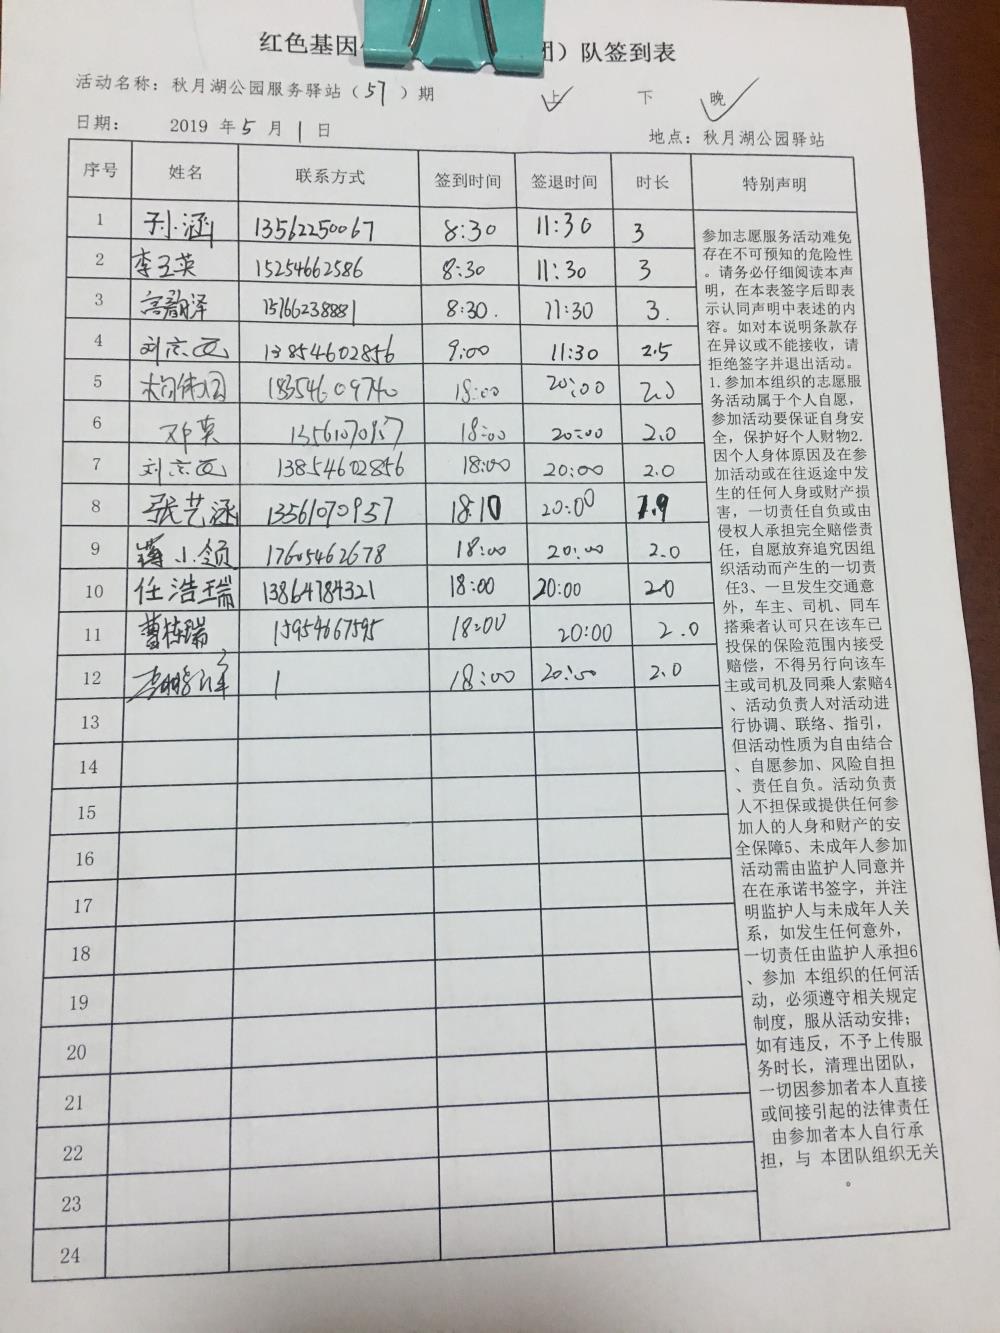 红色基因 团）队签到表
活动名称：秋月湖公园服务驿站（57）期 上 下 晚
日期： 2019 年 5 月 1 日 地点：秋月湖公园驿站
序号 姓名 联系方式 签到时间 签退时间 时长 特别声明
1 孙涵 13562250067 8:30 11:30 3
2 李玉英 15254662586 8:30 11:30 3
3 高韵泽 15766238881 8:30. 11:30 3.
4 刘志远 13854602856 9:00 11:30 2.5
5 18354609740 18:00 20:00 2.0
6 邓英 13561070957 18:00 20:00 2.0
7 刘志远 13854602856 18:00 20:00 2.0
8 张艺涵 13561070957 18:10 20:00 1.9
9 蒋小领 17605462678 18:00 20:00 2.0
10 任浩瑞 13864784321 18:00 20:00 2.0
11 曹栋瑞 15954667595 18:00 20:00 2.0
12 1 18:00 20:00 2.0
13
14
15
16
17
18
19
20
21
22
23
24
参加志愿服务活动难免
存在不可预知的危险性
。请务必仔细阅读本声
明，在本表签字后即表
示认同声明中表述的内
容。如对本说明条款存
在异议或不能接收，请
拒绝签字并退出活动。
1.参加本组织的志愿服
务活动属于个人自愿，
参加活动要保证自身安
全，保护好个人财物2.
因个人身体原因及在参
加活动或在往返途中发
生的任何人身或财产损
害，一切责任自负或由
侵权人承担完全赔偿责
任，自愿放弃追究因组
织活动而产生的一切责
任3、一旦发生交通意
外，车主、司机、同车
搭乘者认可只在该车已
投保的保险范围内接受
赔偿，不得另行向该车
主或司机及同乘人索赔4
、活动负责人对活动进
行协调、联络、指引，
但活动性质为自由结合
、自愿参加、风险自担
、责任自负。活动负责
人不担保或提供任何参
加人的人身和财产的安
全保障5、未成年人参加
活动需由监护人同意并
在在承诺书签字，并注
明监护人与未成年人关
系，如发生任何意外，
一切责任由监护人承担6
、参加 本组织的任何活
动，必须遵守相关规定
制度，服从活动安排；
如有违反，不予上传服
务时长，清理出团队，
一切因参加者本人直接
或间接引起的法律责任
由参加者本人自行承
担，与 本团队组织无关
。